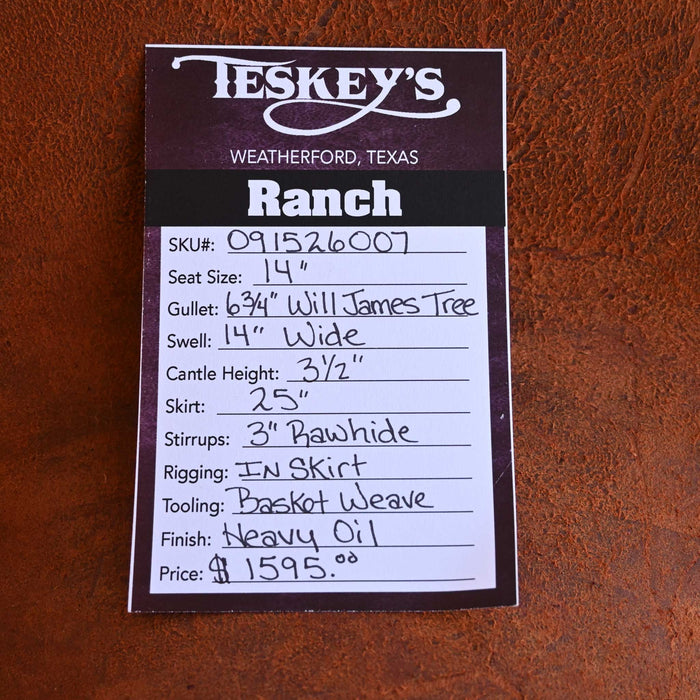 TESKEY'S
WEATHERFORD, TEXAS
Ranch
SKU#: 091526007
Seat Size: 14"
Gullet: 6 3/4" Will James Tree
Swell: 14" Wide
Cantle Height: 3 1/2"
Skirt: 25"
Stirrups: 3" Rawhide
Rigging: IN Skirt
Tooling: Basket Weave
Finish: Heavy Oil
Price: $ 1595.00